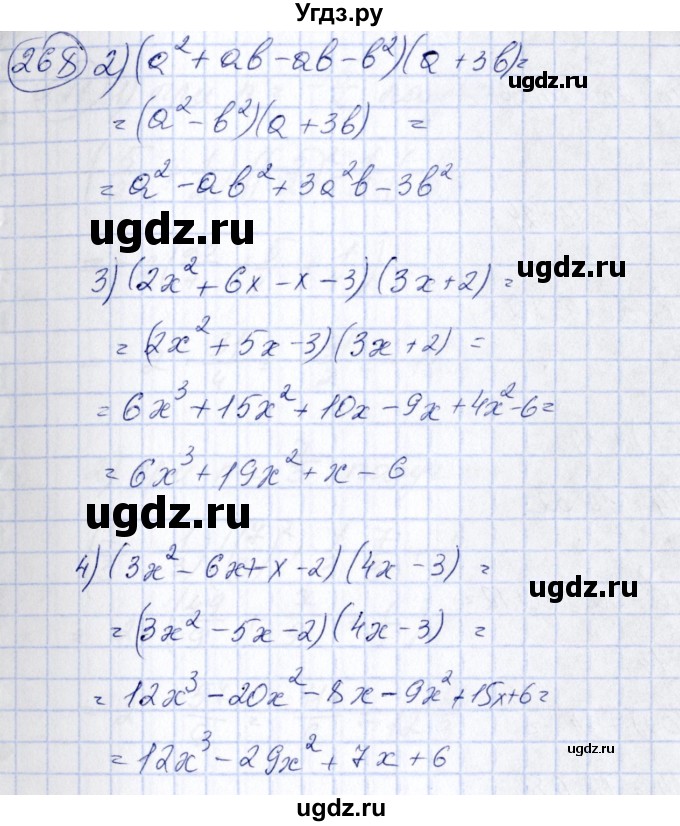 Угдз.ру
268 2) (a² + ab - ab - b²)(a + 3b) =
= (a² - b²)(a + 3b) =
= a² - ab² + 3a²b - 3b²
ugdz.ru
ugdz.ru
3) (2x² + 6x - x - 3)(3x + 2) =
= (2x² + 5x - 3)(3x + 2) =
ugdz.ru
= 6x³ + 15x² + 10x - 9x + 4x² - 6 =
= 6x³ + 19x² + x - 6
ugdz.ru
4) (3x² - 6x + x - 2)(4x - 3) =
ugdz.ru
= (3x² - 5x - 2)(4x - 3) =
= 12x³ - 20x² - 8x - 9x² + 15x + 6 =
= 12x³ - 29x² + 7x + 6
ugdz.ru
ugdz.ru